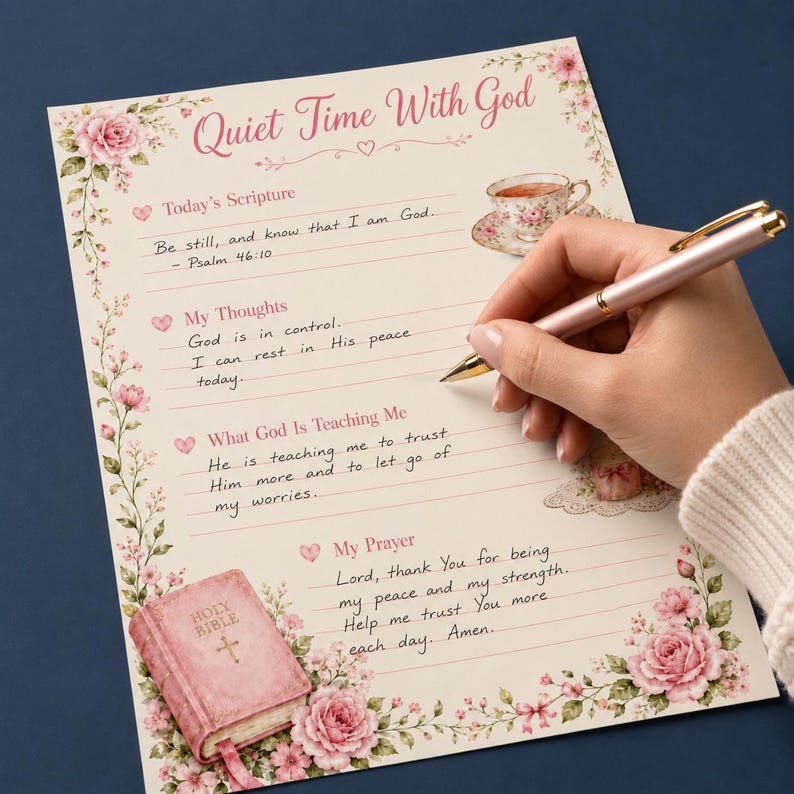 Quiet Time With God
Today's Scripture
Be still, and know that I am God.
– Psalm 46:10
My Thoughts
God is in control.
I can rest in His peace
today.
What God Is Teaching Me
He is teaching me to trust
Him more and to let go of
my worries.
My Prayer
Lord, thank You for being
my peace and my strength.
Help me trust You more
each day. Amen.
HOLY
BIBLE